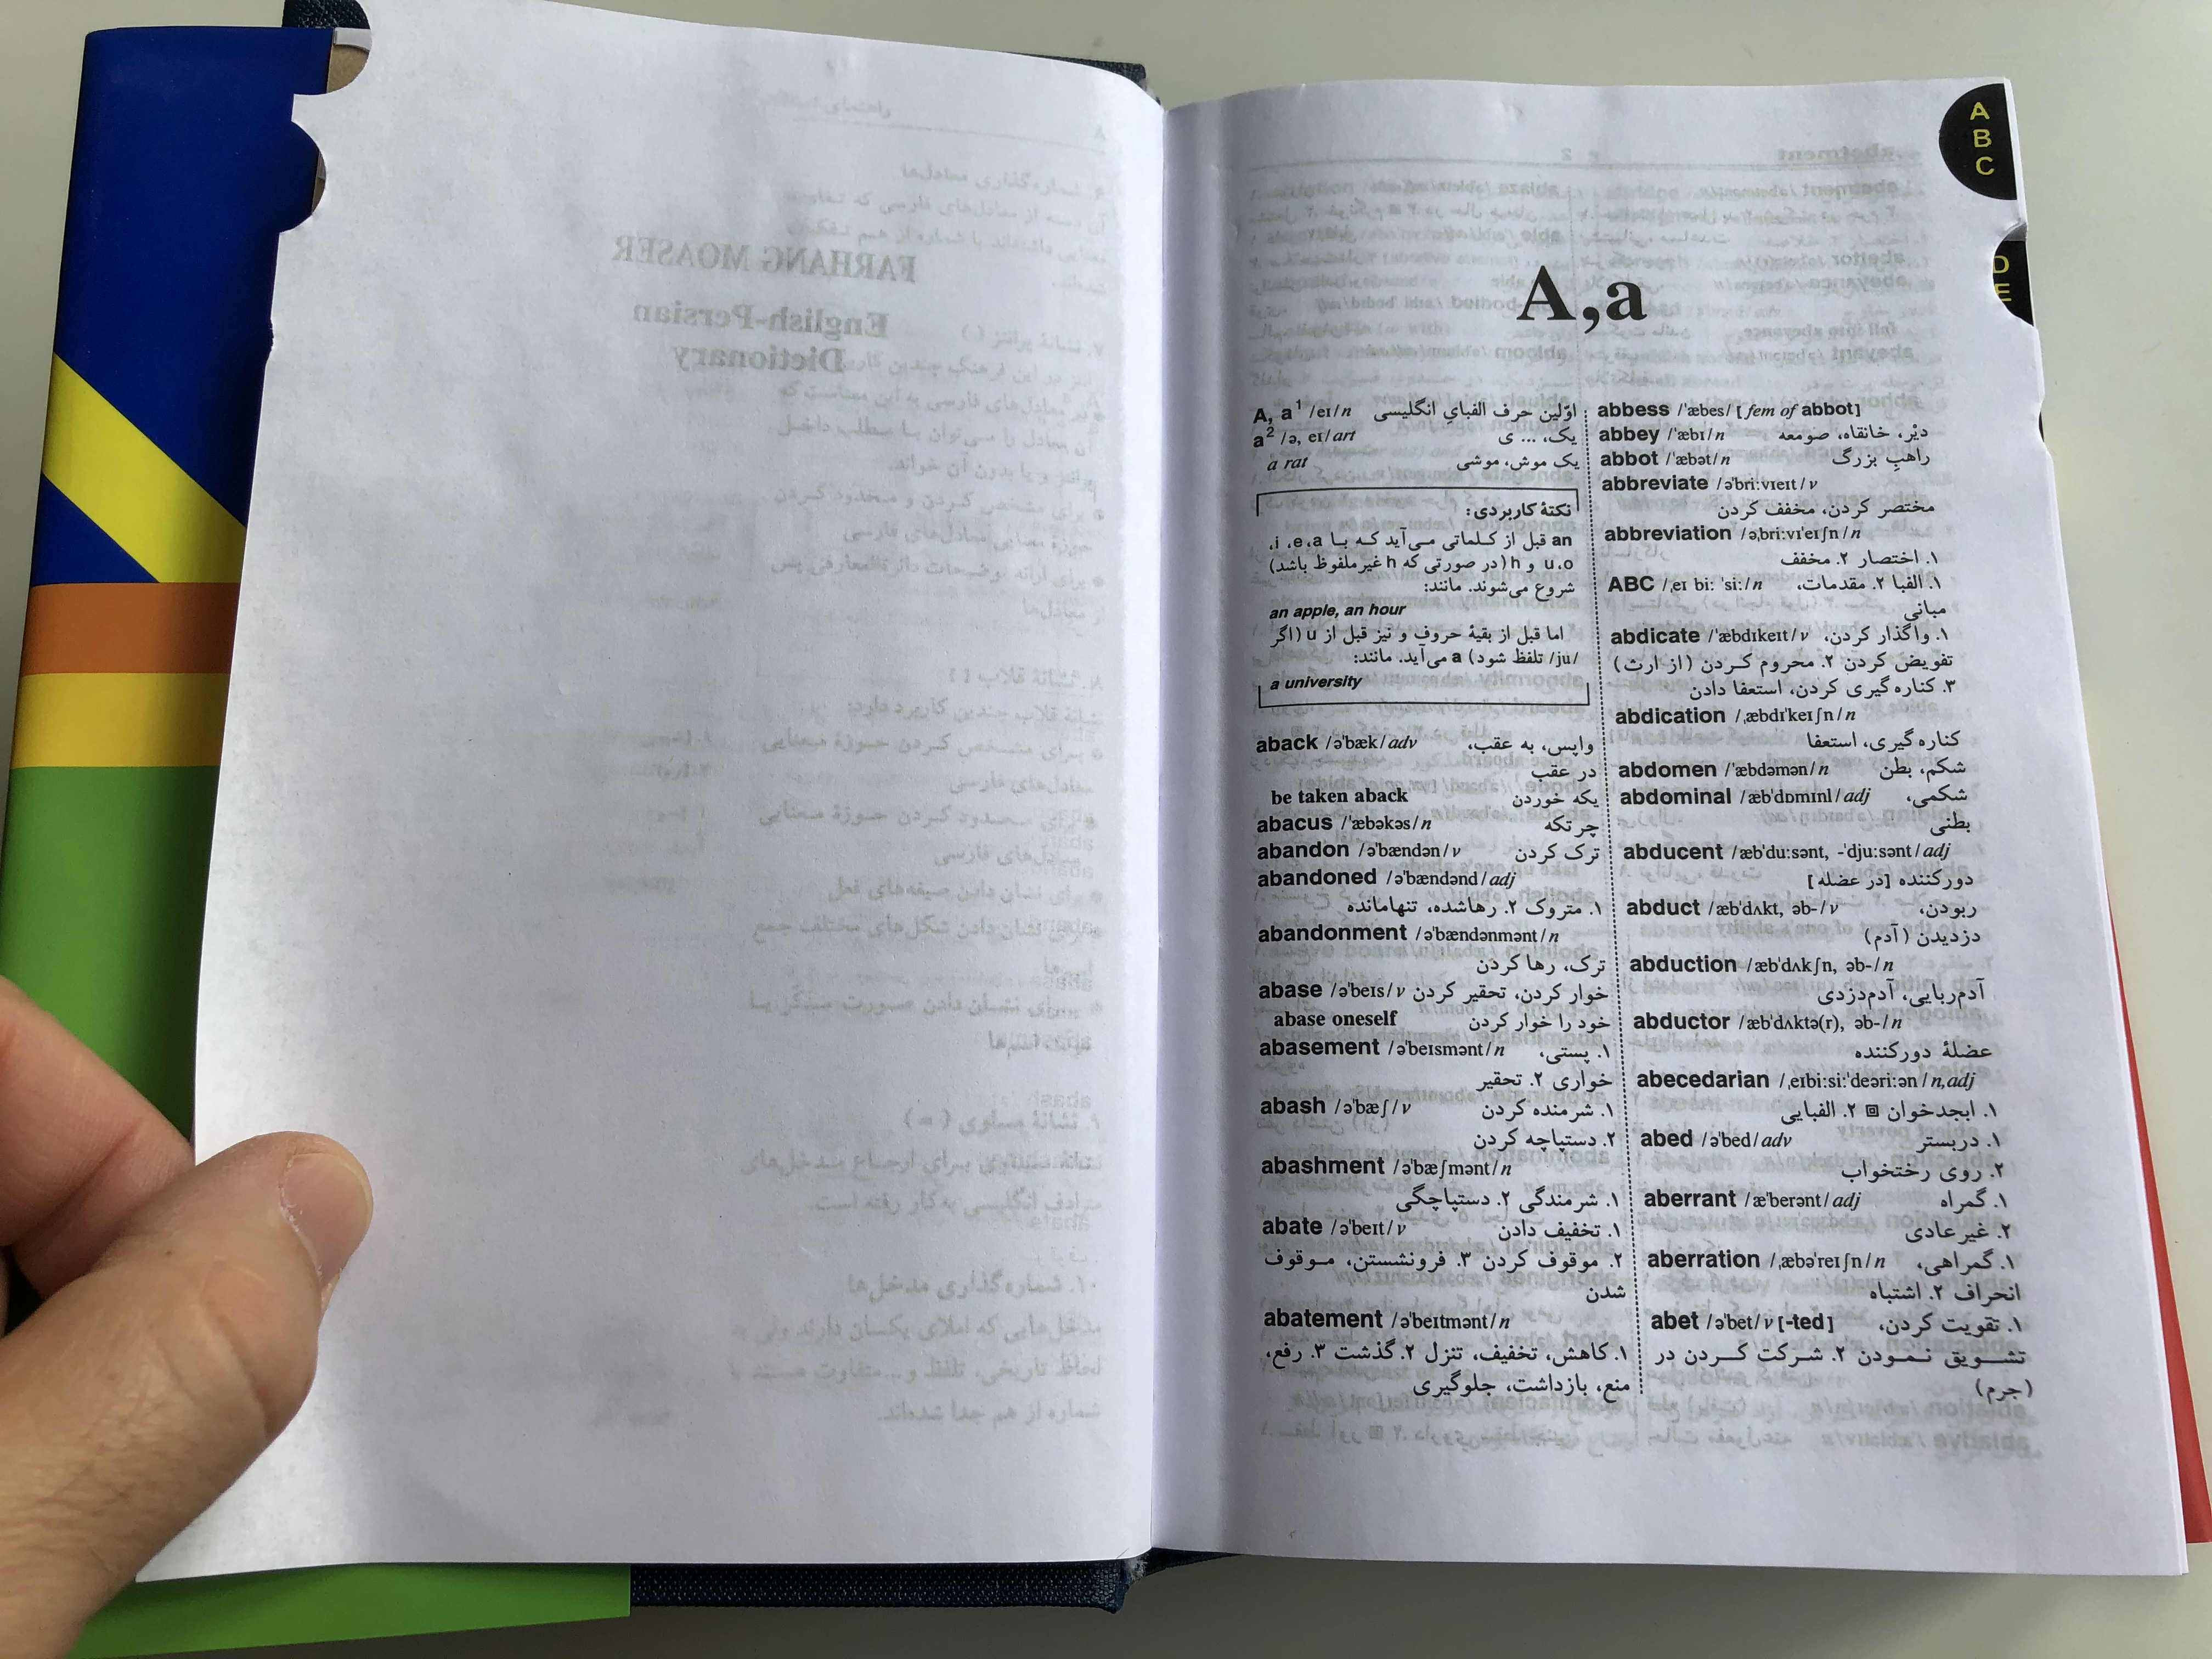 A
B
C
D
E
A,a
A, a¹ /eɪ/ n اوّلین حرف الفبایِ انگلیسی
a² /ə, eɪ/ art یک، ... ی
a rat یک موش، موشی
نکتهٔ کاربردی:
an قبل از کلماتی می‌آید که با i، e، a،
u، o و h (در صورتی که h غیرملفوظ باشد)
شروع می‌شوند. مانند:
an apple, an hour
اما قبل از بقیهٔ حروف و نیز قبل از u (اگر
/ju/ تلفظ شود) a می‌آید. مانند:
a university
aback /əˈbæk/ adv واپس، به عقب،
در عقب
be taken aback یکه خوردن
abacus /ˈæbəkəs/ n چرتکه
abandon /əˈbændən/ v ترک کردن
abandoned /əˈbændənd/ adj
۱. متروک ۲. رهاشده، تنهامانده
abandonment /əˈbændənmənt/ n
ترک، رها کردن
abase /əˈbeɪs/ v خوار کردن، تحقیر کردن
abase oneself خود را خوار کردن
abasement /əˈbeɪsmənt/ n ۱. پستی،
خواری ۲. تحقیر
abash /əˈbæʃ/ v ۱. شرمنده کردن
۲. دستپاچه کردن
abashment /əˈbæʃmənt/ n
۱. شرمندگی ۲. دستپاچگی
abate /əˈbeɪt/ v ۱. تخفیف دادن
۲. موقوف کردن ۳. فرونشستن، موقوف
شدن
abatement /əˈbeɪtmənt/ n
۱. کاهش، تخفیف، تنزل ۲. گذشت ۳. رفع،
منع، بازداشت، جلوگیری
abbess /ˈæbes/ [fem of abbot]
abbey /ˈæbɪ/ n دیْر، خانقاه، صومعه
abbot /ˈæbət/ n راهبِ بزرگ
abbreviate /əˈbri:vɪeɪt/ v
مختصر کردن، مخفف کردن
abbreviation /əˌbri:vɪˈeɪʃn/ n
۱. اختصار ۲. مخفف
ABC /ˌeɪ bi: ˈsi:/ n ۱. الفبا ۲. مقدمات،
مبانی
abdicate /ˈæbdɪkeɪt/ v ۱. واگذار کردن،
تفویض کردن ۲. محروم کردن (از ارث)
۳. کناره‌گیری کردن، استعفا دادن
abdication /ˌæbdɪˈkeɪʃn/ n
کناره‌گیری، استعفا
abdomen /ˈæbdəmən/ n شکم، بطن
abdominal /æbˈdɒmɪnl/ adj شکمی،
بطنی
abducent /æbˈdu:sənt, -ˈdju:sənt/ adj
دورکننده [در عضله]
abduct /æbˈdʌkt, əb-/ v ربودن،
دزدیدن (آدم)
abduction /æbˈdʌkʃn, əb-/ n
آدم‌ربایی، آدم‌دزدی
abductor /æbˈdʌktə(r), əb-/ n
عضلهٔ دورکننده
abecedarian /ˌeɪbi:si:ˈdeəri:ən/ n,adj
۱. ابجدخوان ▣ ۲. الفبایی
abed /əˈbed/ adv ۱. دربستر
۲. روی رختخواب
aberrant /æˈberənt/ adj ۱. گمراه
۲. غیرعادی
aberration /ˌæbəˈreɪʃn/ n ۱. گمراهی،
انحراف ۲. اشتباه
abet /əˈbet/ v [-ted] ۱. تقویت کردن،
تشویق نمودن ۲. شرکت کردن در
(جرم)